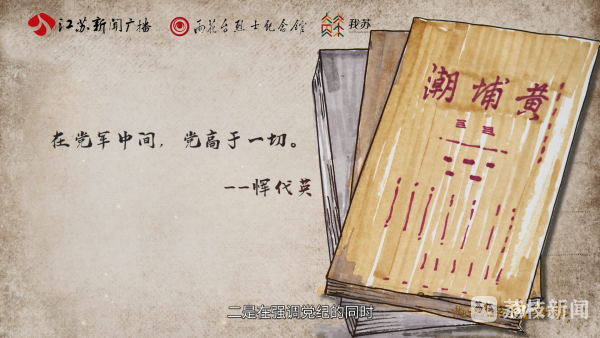 江苏新闻广播
雨花台烈士纪念馆
我苏
黄埔潮
在党军中间，党高于一切。
——恽代英
二是在强调党纪的同时
荔枝新闻